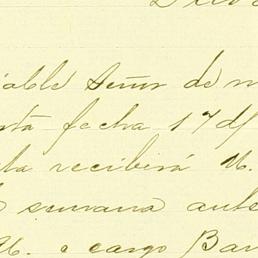 able Señor de m
fecha 17 d/
la recibirá U.
semana ante
U. a cargo Ban